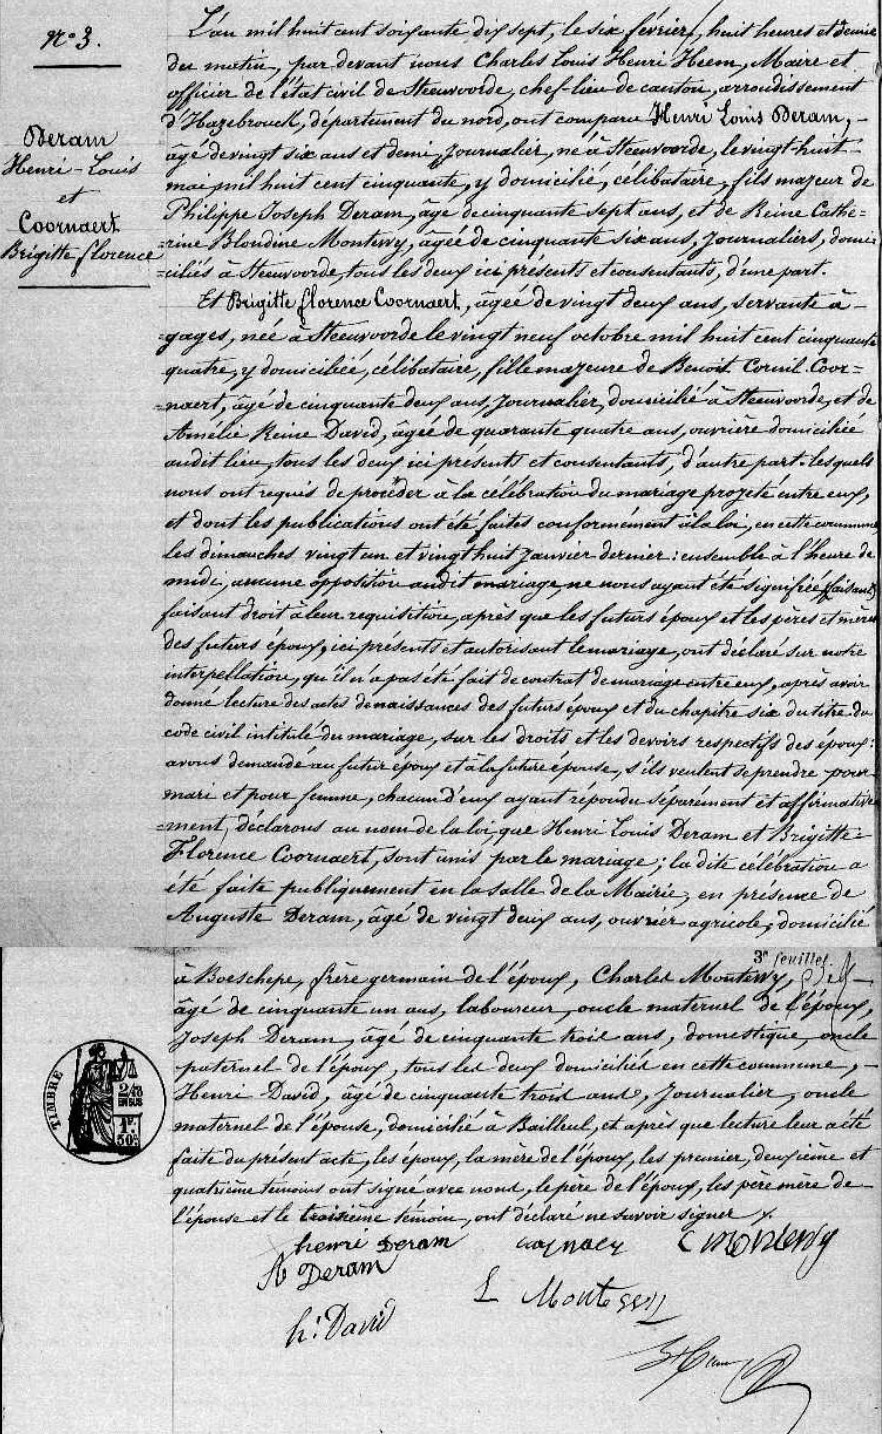 N° 3.
Deram
Henri-Louis
et
Coornaert
Brigitte florence
L'an mil huit cent soixante dix sept, le six février, huit heures et demie
du matin, par devant nous Charles Louis Henri Heem, Maire et
officier de l'état civil de Steenvoorde, chef-lieu de canton, arrondissement
d'Hazebrouck, département du nord, ont comparu Henri Louis Deram, -
âgé de vingt six ans et demi, Journalier, né à Steenvoorde, le vingt-huit
mai mil huit cent cinquante, y domicilié, célibataire, fils majeur de
Philippe Joseph Deram, âgé de cinquante sept ans, et de Reine Cathe=
=rine Blondine Montewy, âgée de cinquante six ans, Journaliers, domi=
=ciliés à Steenvoorde, tous les deux ici présents et consentants, d'une part.
Et Brigitte florence Coornaert, âgée de vingt deux ans, servante à -
=gages, née à Steenvoorde le vingt neuf octobre mil huit cent cinquante
quatre, y domiciliée, célibataire, fille majeure de Benoit Cornil Coor=
=naert, âgé de cinquante deux ans, Journalier, domicilié à Steenvoorde, et de
Amélie Reine David, âgée de quarante quatre ans, ouvrière domiciliée
audit lieu, tous les deux ici présents et consentants, d'autre part. lesquels
nous ont requis de procéder à la célébration du mariage projeté entre eux,
et dont les publications ont été faites conformément à la loi, en cette commune,
les dimanches vingt un et vingt huit Janvier dernier : ensemble à l'heure de
midi, aucune opposition audit mariage, ne nous ayant été signifiée, (faisant)
faisant droit à leur requisitition, après que les futurs époux et les pères et mères
des futurs époux, ici présents et autorisant le mariage, ont déclaré sur notre
interpellation, qu'il n'a pas été fait de contrat de mariage entre eux, après avoir
donné lecture des actes de naissances des futurs époux et du chapitre six du titre du
code civil intitulé du mariage, sur les droits et les devoirs respectifs des époux :
avons demandé au futur époux et à la future épouse, s'ils veulent se prendre pour
mari et pour femme, chacun d'eux ayant répondu séparément et affirmative
=ment, déclarons au nom de la loi, que Henri Louis Deram et Brigitte=
Florence Coornaert, sont unis par le mariage ; la dite célébration a
été faite publiquement en la salle de la Mairie, en présence de
Auguste Deram, âgé de vingt deux ans, ouvrier agricole, domicilié
3e feuillet.
à Boeschepe, frère germain de l'époux, Charles Montewy, -
âgé de cinquante un ans, laboureur, oncle maternel de l'époux,
Joseph Deram, âgé de cinquante trois ans, domestique, oncle
paternel de l'époux, tous les deux domiciliés en cette commune, -
Henri David, âgé de cinquante trois ans, Journalier, oncle
maternel de l'épouse, domicilié à Bailleul, et après que lecture leur a été
faite du présent acte, les époux, la mère de l'époux, les premier, deuxième et
quatrième temoins ont signé avec nous, le père de l'époux, les père mère de
l'épouse et le troisième témoin, ont déclaré ne savoir signer.
TIMBRE
2/10
EN SUS
1F.
50c.
henri Deram
C Montewy
A Deram
h. David